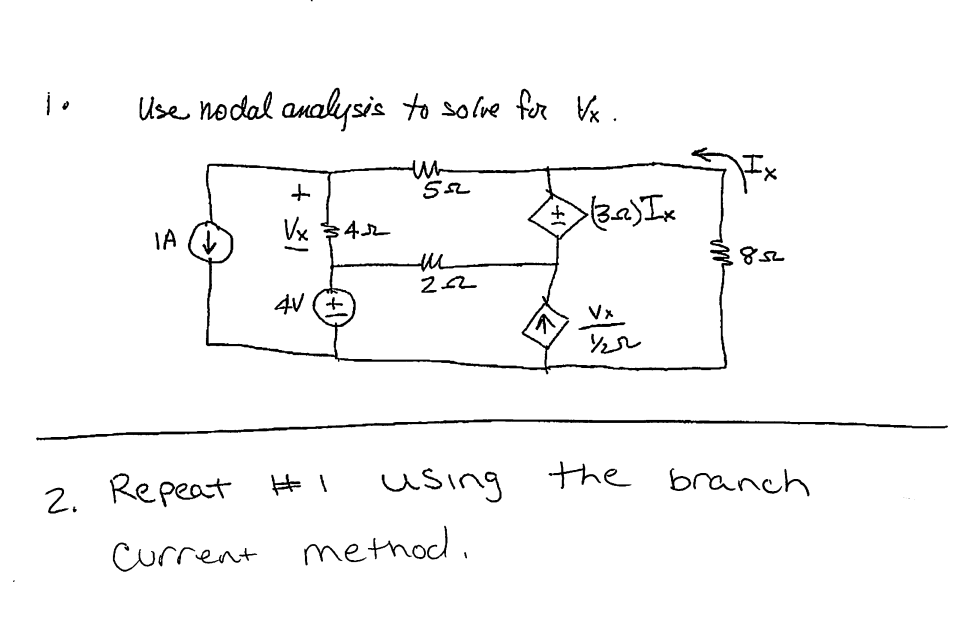 1. Use nodal analysis to solve for Vx.
Ix
5Ω
+
Vx
4Ω
+
(3Ω)Ix
1A
8Ω
2Ω
4V
+
Vx
1/2Ω
2. Repeat #1 using the branch
current method.